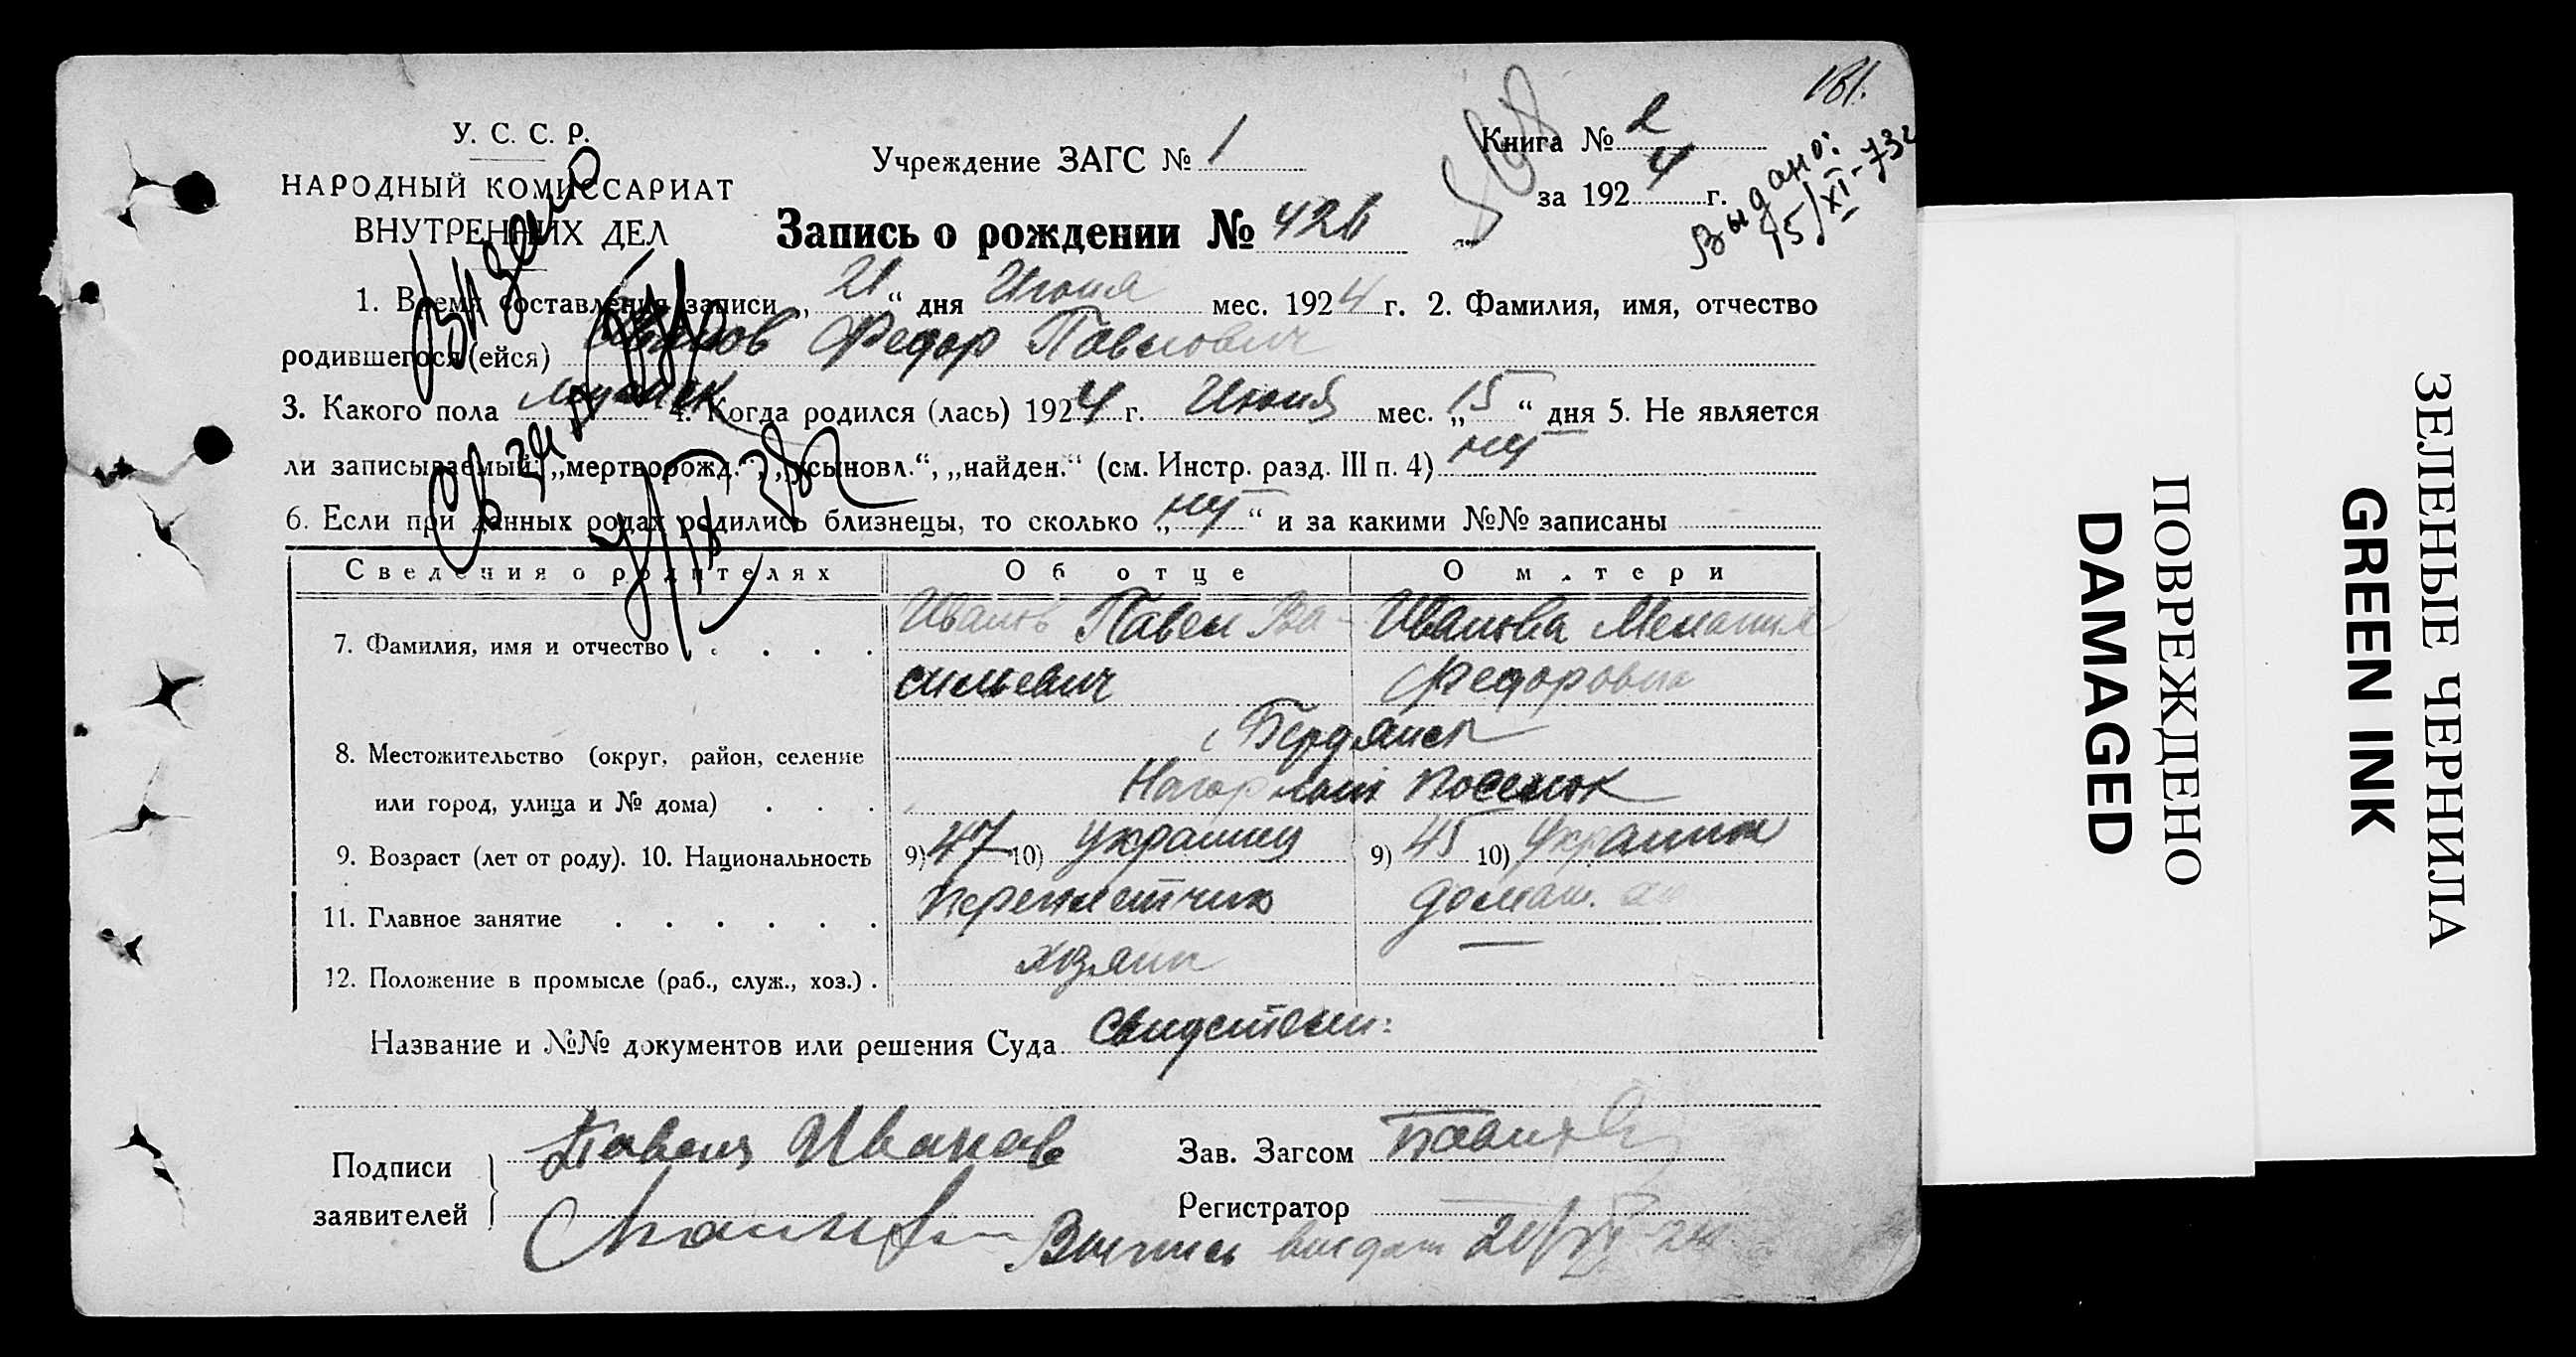 181.
У. С. С. Р.
НАРОДНЫЙ КОМИССАРИАТ
ВНУТРЕННИХ ДЕЛ
Учреждение ЗАГС № 1
Книга № 2
за 1924 г.
Выдано:
15/XI-73г
Запись о рождении № 426
1. Время составления записи „21“ дня Июня мес. 1924 г. 2. Фамилия, имя, отчество
родившегося (ейся) Иванов Федор Павлович
3. Какого пола мужск 4. Когда родился (лась) 1924 г. Июня мес. „15“ дня 5. Не является
ли записываемый: „мертворожд.“, „усыновл.“, „найден.“ (см. Инстр. разд. III п. 4) нет
6. Если при данных родах родились близнецы, то сколько „нет“ и за какими №№ записаны
Сведения о родителях Об отце О м.тери
7. Фамилия, имя и отчество Иванов Павел Ва- Иванова Мелания
сильевич Федоровна
8. Местожительство (округ, район, селение Бердянск
или город, улица и № дома) Нагорный поселок
9. Возраст (лет от роду). 10. Национальность 9) 47 10) украинец 9) 45 10) украинка
11. Главное занятие переплетчик домаш.
12. Положение в промысле (раб., служ., хоз.) хозяин —
Название и №№ документов или решения Суда свидетели:
Подписи заявителей Павел Иванов
Зав. Загсом
Регистратор
Выпись выдана 21/VI-24
ЗЕЛЕНЫЕ ЧЕРНИЛА
GREEN INK
ПОВРЕЖДЕНО
DAMAGED